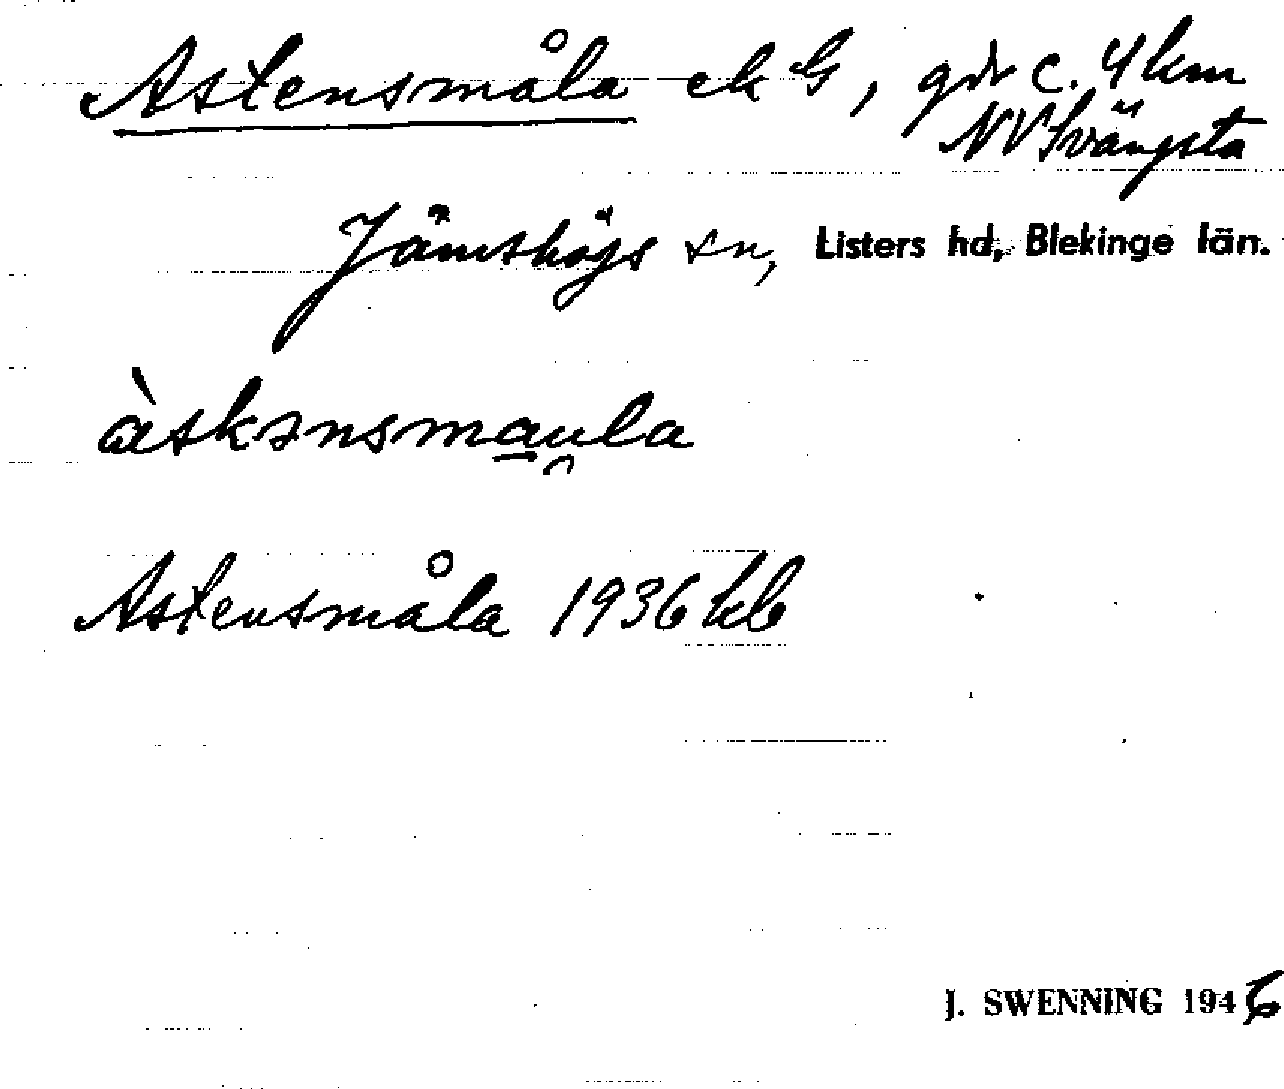 Astensmåla ek G, gdr c. 4 km
NV Svängsta
Jämshögs sn, Listers hd, Blekinge län.
àskənsmau̯la
Astensmåla 1936 kb
J. SWENNING 1946